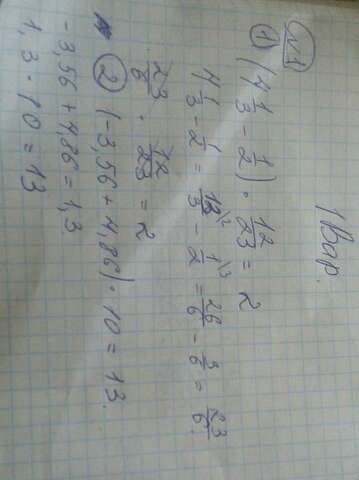 1 Вар.
№1
1) (4 1/3 - 1/2) · 12/23 = 2
4 1/3 - 1/2 = 13/3 \2 - 1/2 \3 = 26/6 - 3/6 = 23/6.
23/6 · 12/23 = 2
2) (-3,56 + 4,86) · 10 = 13.
-3,56 + 4,86 = 1,3
1,3 · 10 = 13